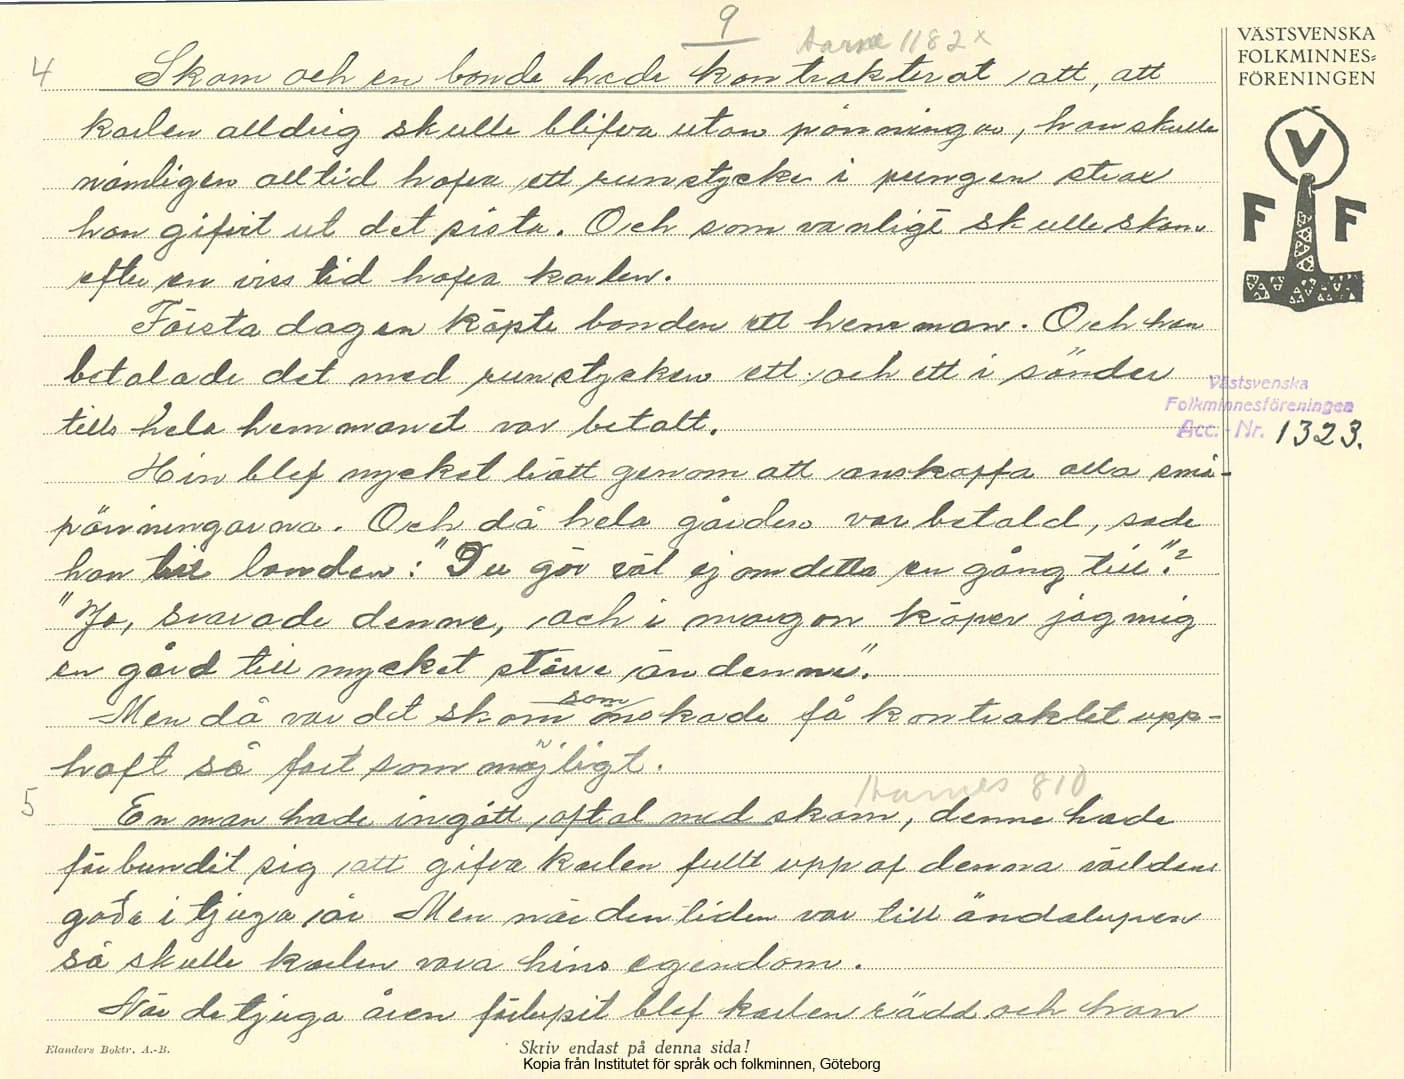 9
Aarne 1182x
VÄSTSVENSKA
FOLKMINNES=
FÖRENINGEN
V
F F
4 Skam och en bonde hade kontrakterat, att, att
karlen alldrig skulle blifva utan pänningar, han skulle
nämligen alltid hafva ett runstycke i pungen strax
han gifvit ut det sista. Och som vanligt skulle skam
efter en viss tid hafva karlen.
Första dagen köpte bonden ett hemman. Och han
betalade det med runstycken ett och ett i sönder
tills hela hemmanet var betalt.
Västsvenska
Folkminnesföreningen
Acc.-Nr. 1323.
Hin blef mycket trött genom att anskaffa alla små-
pänningarna. Och då hela gården var betald, sade
han till bonden: "Du gör väl ej om detta en gång till"?
"Jo, svarade denne, och i morgon köper jag mig
en gård till mycket större än denna".
Men då var det skam som önskade få kontraktet upp-
häft så fort som möjligt.
Aarnes 810
5 En man hade ingått aftal med skam, denne hade
förbundit sig att gifva karlen fullt upp af denna världens
goda i tjugo år Men när den tiden var till ändalupen
så skulle karlen vara hins egendom.
När de tjugo åren förlupit blef karlen rädd och han
Elanders Boktr. A.-B.
Skriv endast på denna sida!
Kopia från Institutet för språk och folkminnen, Göteborg